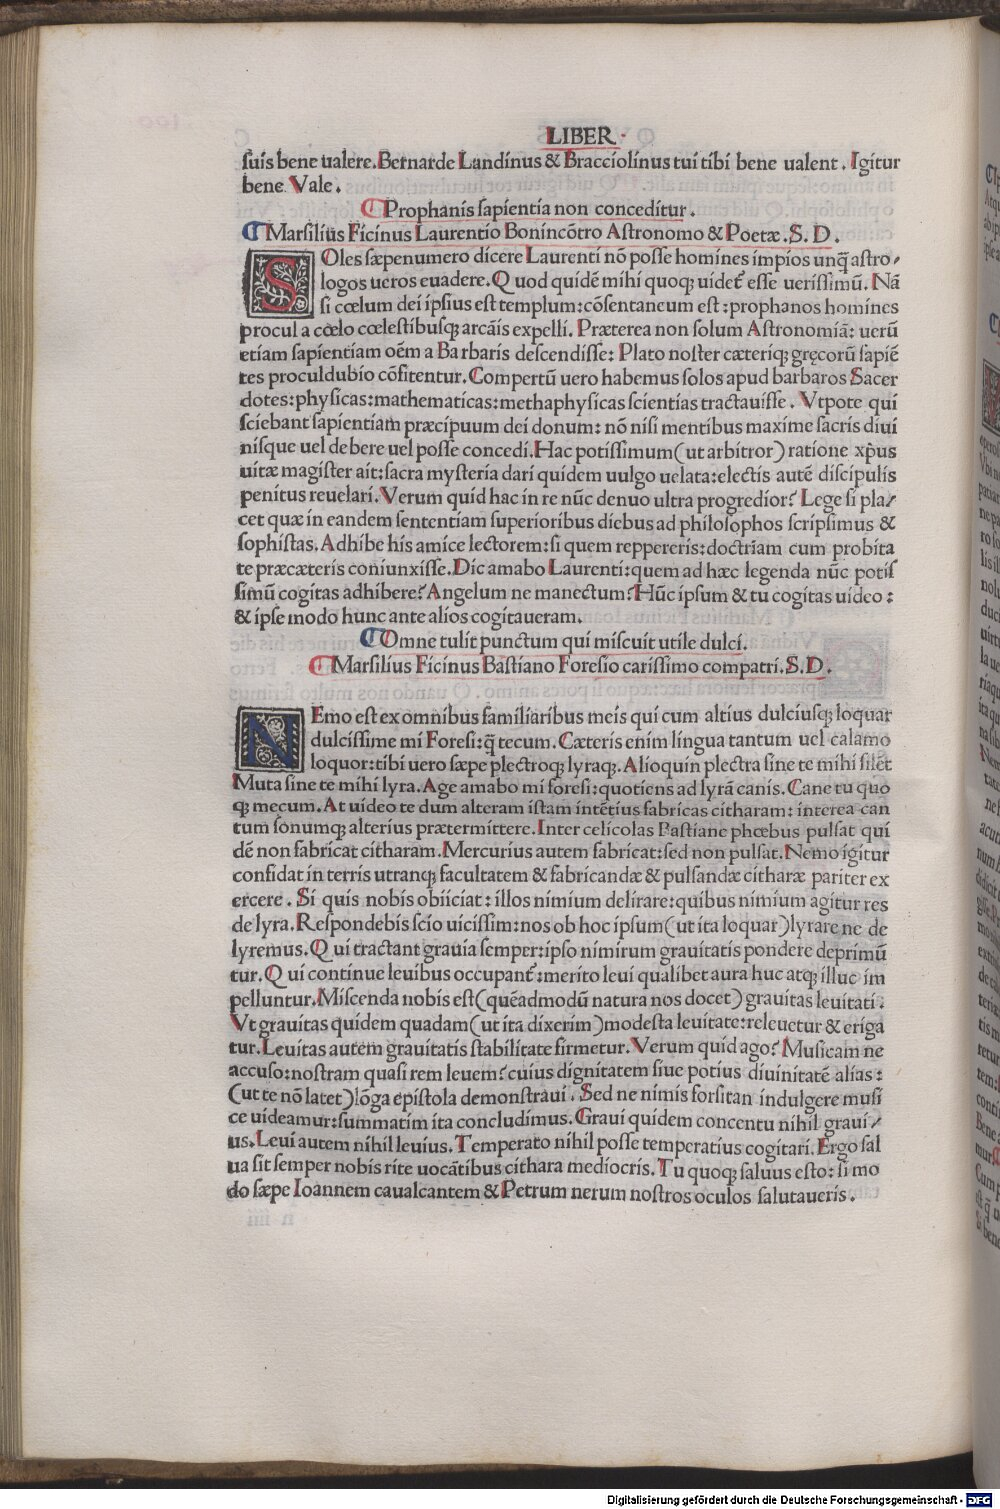 LIBER
suis bene ualere. Bernarde Landinus & Bracciolinus tui tibi bene ualent. Igitur
bene Vale.
Prophanis sapientia non conceditur.
Marsilius Ficinus Laurentio Bonincõtro Astronomo & Poetæ. S. D.
SOles sæpenumero dicere Laurenti nõ posse homines impios unq̃ astro/
logos ueros euadere. Quod quidẽ mihi quoq; uidet̃ esse uerissimũ. Nã
si cœlum dei ipsius est templum: cõsentaneum est: prophanos homines
procul a cœlo cœlestibusq; arcãis expelli. Præterea non solum Astronomiã: uerũ
etiam sapientiam oẽm a Barbaris descendisse: Plato noster cæteriq; gręcorũ sapiẽ
tes proculdubio cõfitentur. Compertũ uero habemus solos apud barbaros Sacer
dotes: physicas: mathematicas: methaphysicas scientias tractauisse. Vtpote qui
sciebant sapientiam præcipuum dei donum: nõ nisi mentibus maxime sacris diui
nisque uel debere uel posse concedi. Hac potissimum (ut arbitror) ratione xp̃us
uitæ magister ait: sacra mysteria dari quidem uulgo uelata: electis autẽ discipulis
penitus reuelari. Verum quid hac in re nũc denuo ultra progredior? Lege si pla/
cet quæ in eandem sententiam superioribus diebus ad philosophos scripsimus &
sophistas. Adhibe his amice lectorem: si quem reppereris: doctriam cum probita
te præcæteris coniunxisse. Dic amabo Laurenti: quem ad hæc legenda nũc potis
simũ cogitas adhibere? Angelum ne manectum? Hũc ipsum & tu cogitas uideo:
& ipse modo hunc ante alios cogitaueram.
Omne tulit punctum qui miscuit utile dulci.
Marsilius Ficinus Bastiano Foresio carissimo compatri. S. D.
NEmo est ex omnibus familiaribus meis qui cum altius dulciusq; loquar
dulcissime mi Foresi: q̃ tecum. Cæteris enim lingua tantum uel calamo
loquor: tibi uero sæpe plectroq; lyraq;. Alioquin plectra sine te mihi silẽt
Muta sine te mihi lyra. Age amabo mi foresi: quotiens ad lyrã canis. Cane tu quo
q; mecum. At uideo te dum alteram istam intẽtius fabricas citharam: interea can
tum sonumq; alterius prætermittere. Inter celicolas Bastiane phœbus pulsat qui
dẽ non fabricat citharam. Mercurius autem fabricat: sed non pulsat. Nemo igitur
confidat in terris utranq; facultatem & fabricandæ & pulsandæ citharæ pariter ex
ercere. Si quis nobis obiiciat: illos nimium delirare: quibus nimium agitur res
de lyra. Respondebis scio uicissim: nos ob hoc ipsum (ut ita loquar) lyrare ne de
lyremus. Qui tractant grauia semper: ipso nimirum grauitatis pondere deprimũ
tur. Qui continue leuibus occupant̃: merito leui qualibet aura huc atq; illuc im
pelluntur. Miscenda nobis est (quẽadmodũ natura nos docet) grauitas leuitati:
Vt grauitas quidem quadam (ut ita dixerim) modesta leuitate: releuetur & eriga
tur. Leuitas autem grauitatis stabilitate firmetur. Verum quid ago? Musicam ne
accuso: nostram quasi rem leuem? cuius dignitatem siue potius diuinitatẽ alias:
(ut te nõ latet) lõga epistola demonstraui. Sed ne nimis forsitan indulgere musi
ce uideamur: summatim ita concludimus. Graui quidem concentu nihil graui/
us. Leui autem nihil leuius. Temperato nihil posse temperatius cogitari. Ergo sal
ua sit semper nobis rite uocãtibus cithara mediocris. Tu quoq; saluus esto: si mo
do sæpe Ioannem caualcantem & Petrum nerum nostros oculos salutaueris.
Digitalisierung gefördert durch die Deutsche Forschungsgemeinschaft - DFG